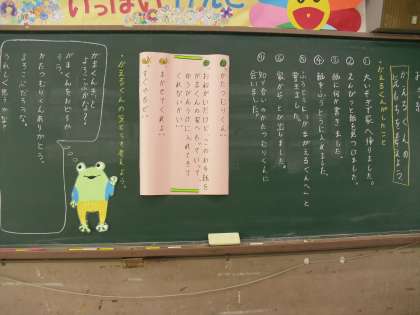 いっぱい
かえるくんの
かえるくんがしたこと
① 大いそぎで家へ帰りました。
② えんぴつと紙を見つけました。
③ 紙に何か書きました。
④ 紙をふうとうに入れました。
⑤ ふうとうに「がまがえるくんへ」と
書きました。
⑥ 家からとび出しました。
⑦ 知り合いのかたつむりくんに
会いました。
かたつむりくん。
おねがいだけど、このお手紙を
がまくんの家へもっていって、
ゆうびんうけに入れてきて
くれないかい。
まかせてくれよ。
すぐやるぜ。
かえるくんの気もちを考えよう。
がまくん、きっと
よろこぶだろうな。
かたつむりくんありがとう。